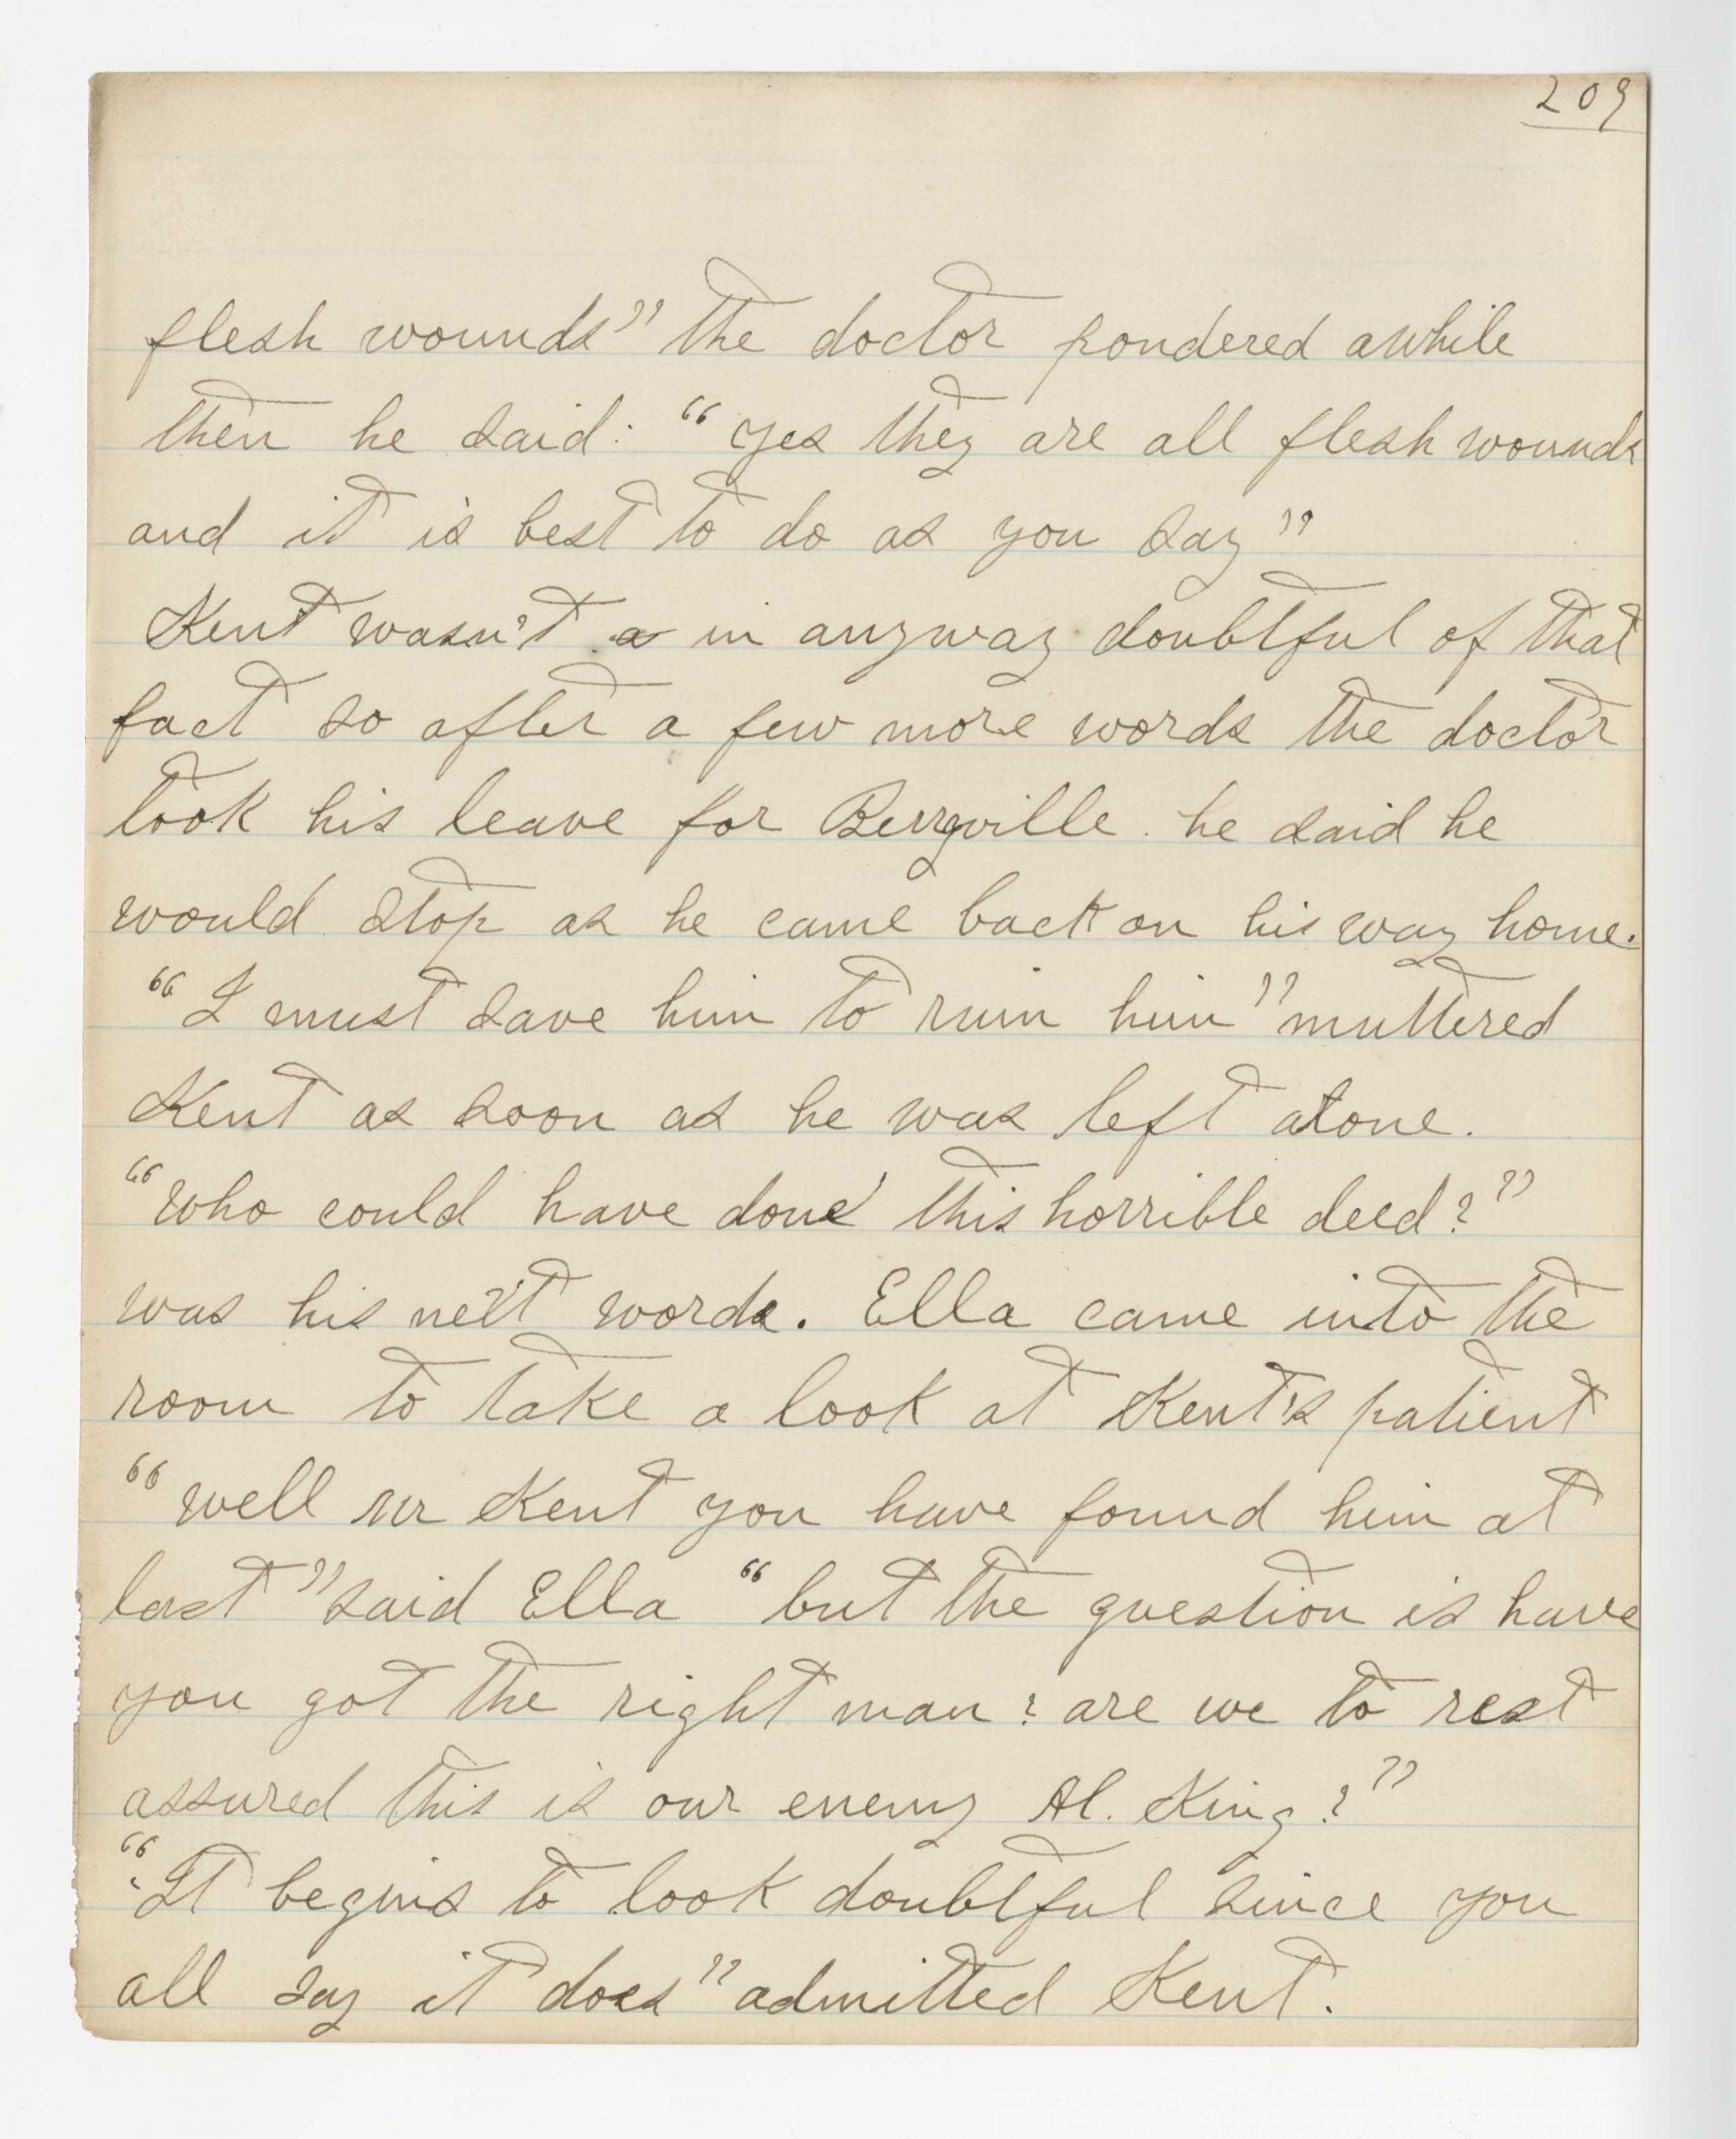 209
flesh wounds" the doctor pondered awhile
then he said: "yes they are all flesh wounds
and it is best to do as you say"
Kent wasn't a in anyway doubtful of that
fact so after a few more words the doctor
took his leave for Berryville. he said he
would stop as he came back on his way home.
"I must save him to ruin him" muttered
Kent as soon as he was left alone.
"who could have done this horrible deed?"
was his next words. Ella came into the
room to take a look at Kent's patient
"well mr Kent you have found him at
last" said Ella "but the question is have
you got the right man? are we to rest
assured this is our enemy Al. King?"
"It begins to look doubtful since you
all say it does" admitted Kent.